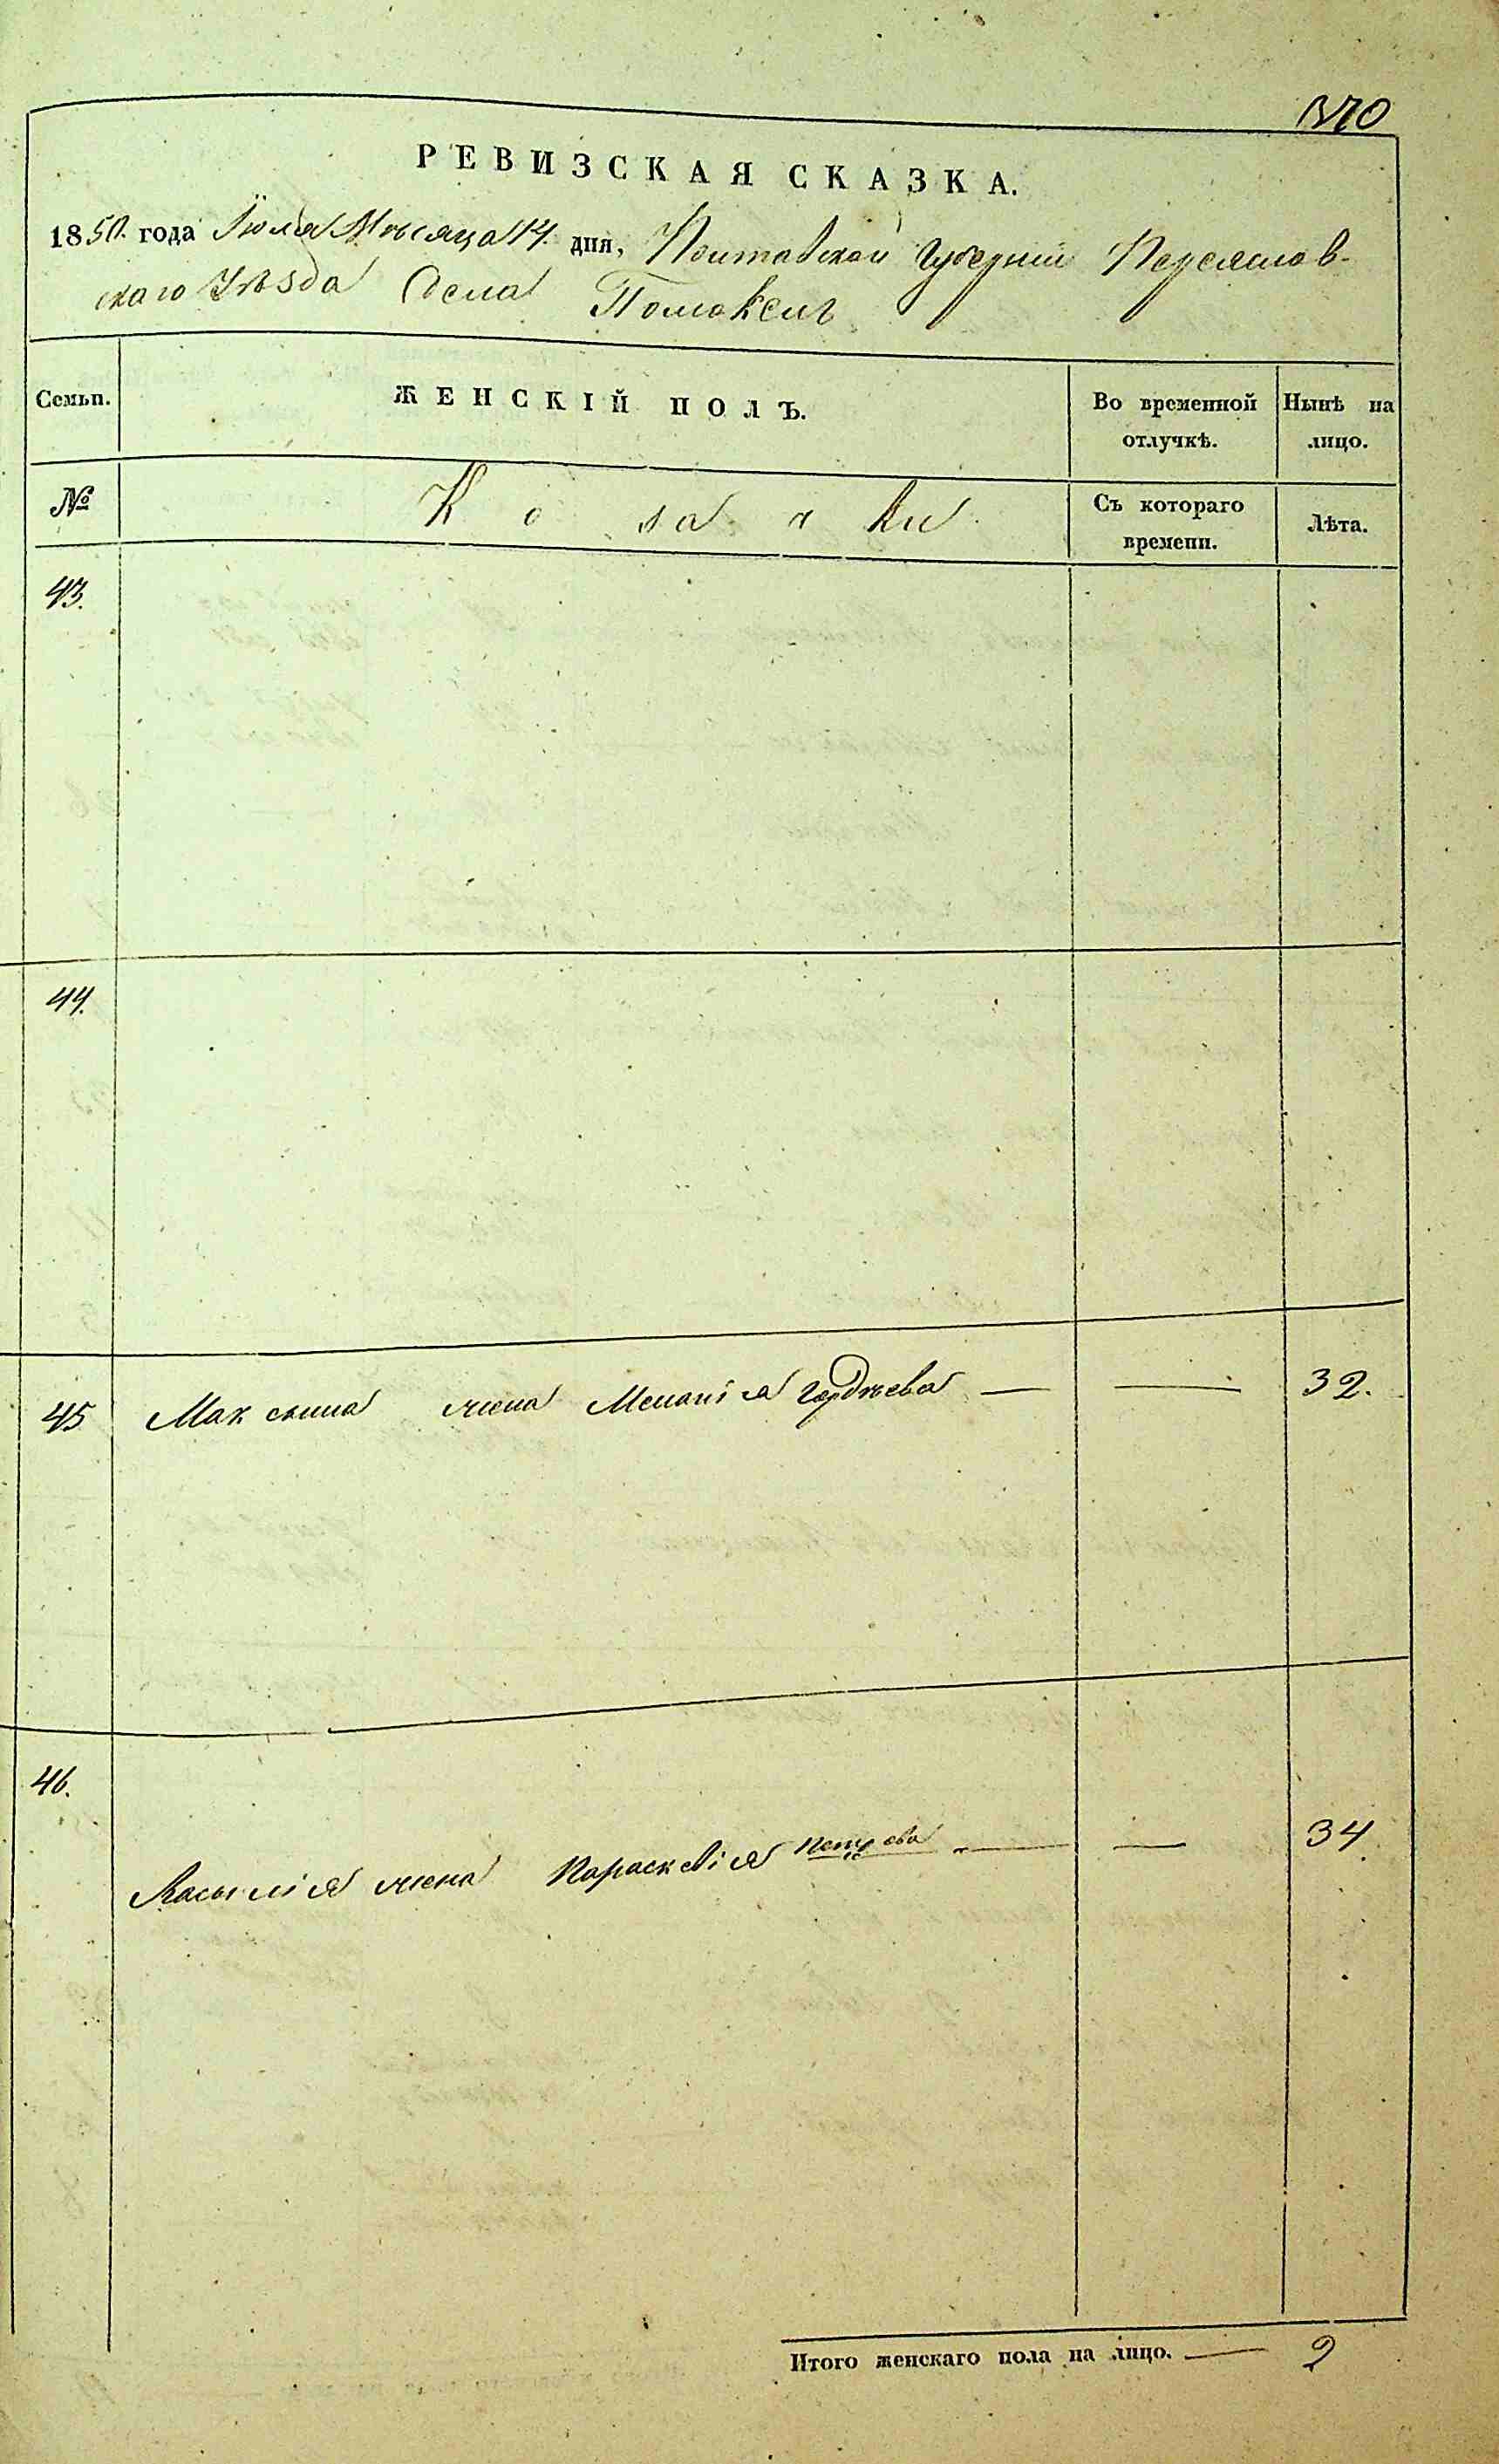 370
РЕВИЗСКАЯ СКАЗКА.
1850. года Іюля Мѣсяца 14. дня, Полтавской Губерніи Переяслов-
скаго Уѣзда Села Помоклъ
Семьи.
ЖЕНСКІЙ ПОЛЪ.
Во временной отлучкѣ.
Нынѣ на лицо.
№
Козаки.
Съ котораго времени.
Лѣта.
43.
44.
45 Максыма жена Меланія Гордѣева — — 32.
46.
Васылія жена Параскевія Петрова — — 34.
Итого женскаго пола на лицо. — 2